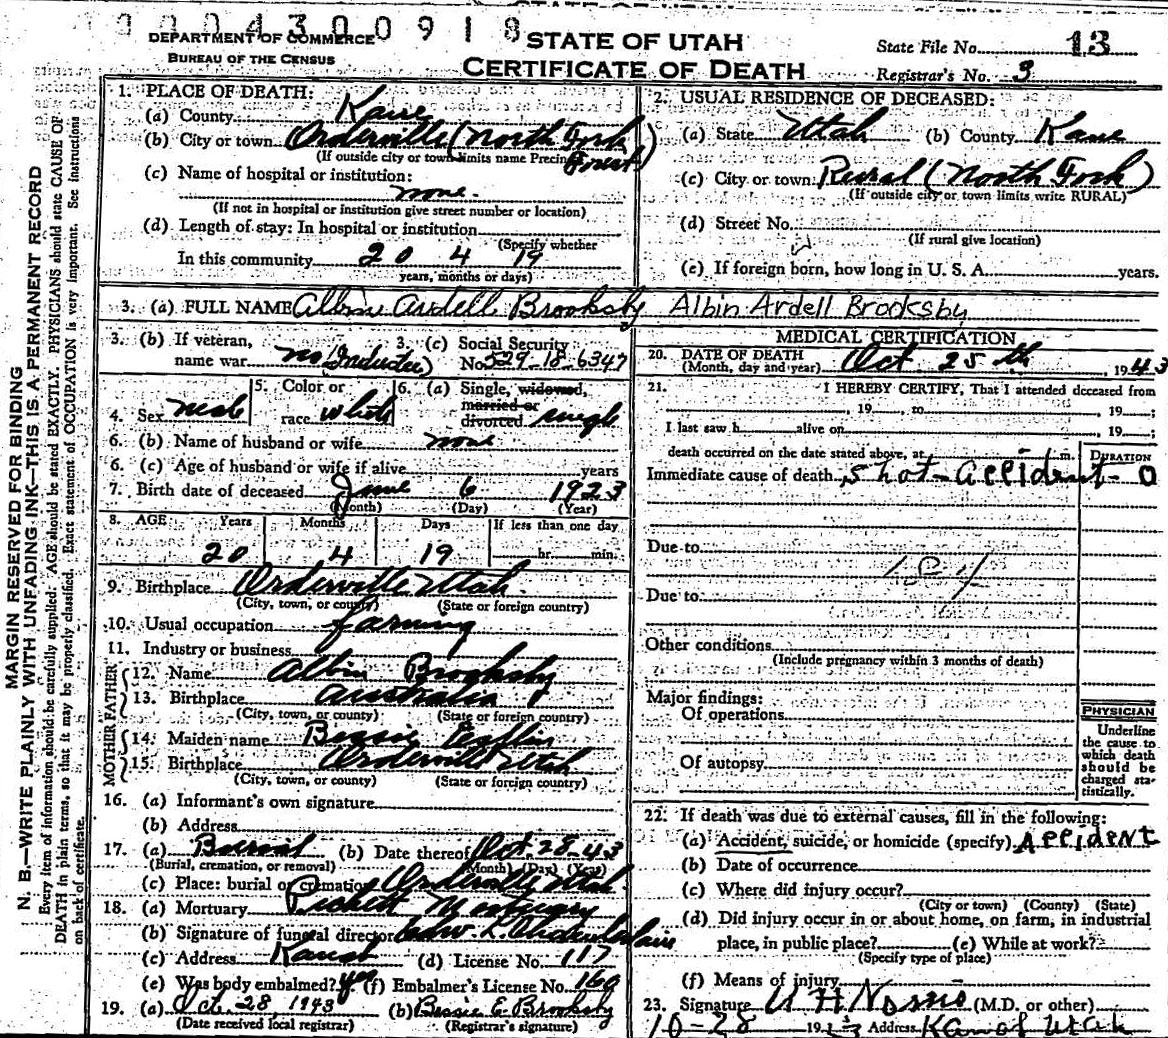 0004300918
DEPARTMENT OF COMMERCE
BUREAU OF THE CENSUS
STATE OF UTAH
CERTIFICATE OF DEATH
State File No. 13
Registrar's No. 3
MARGIN RESERVED FOR BINDING
N. B.—WRITE PLAINLY WITH UNFADING INK—THIS IS A PERMANENT RECORD
Every item of information should be carefully supplied. AGE should be stated EXACTLY. PHYSICIANS should state CAUSE OF
DEATH in plain terms, so that it may be properly classified. Exact statement of OCCUPATION is very important. See instructions
on back of certificate.
1. PLACE OF DEATH:
(a) County Kane
(b) City or town Orderville (North Fork
(If outside city or town limits name Precinct)
(c) Name of hospital or institution:
none.
(If not in hospital or institution give street number or location)
(d) Length of stay: In hospital or institution
(Specify whether
In this community 20 4 19
years, months or days)
2. USUAL RESIDENCE OF DECEASED:
(a) State Utah (b) County Kane
(c) City or town Rural (North Fork)
(If outside city or town limits write RURAL)
(d) Street No.
(If rural give location)
(e) If foreign born, how long in U. S. A. years.
3. (a) FULL NAME Albin Ardell Brooksby Albin Ardell Brooksby
3. (b) If veteran, name war no (Inductee)
3. (c) Social Security No. 529-18-6347
4. Sex male
5. Color or race white
6. (a) Single, widowed, married or divorced single
6. (b) Name of husband or wife none
6. (c) Age of husband or wife if alive years
7. Birth date of deceased June 6 1923
(Month) (Day) (Year)
8. AGE Years Months Days If less than one day
20 4 19 hr. min.
9. Birthplace Orderville Utah.
(City, town, or county) (State or foreign country)
10. Usual occupation farming
11. Industry or business
FATHER
12. Name Albin Brooksby
13. Birthplace Australia
(City, town, or county) (State or foreign country)
MOTHER
14. Maiden name Bessie Esplin
15. Birthplace Orderville Utah
(City, town, or county) (State or foreign country)
16. (a) Informant's own signature
(b) Address
17. (a) Burial (b) Date thereof Oct. 28-43
(Burial, cremation, or removal) (Month) (Day) (Year)
(c) Place: burial or cremation Orderville Utah.
18. (a) Mortuary Pickett Mortuary
(b) Signature of funeral director
(c) Address Kanab (d) License No. 117
(e) Was body embalmed? yes (f) Embalmer's License No. 160
19. (a) Oct. 28, 1943 (b) Bessie E Brooksby
(Date received local registrar) (Registrar's signature)
MEDICAL CERTIFICATION
20. DATE OF DEATH Oct. 25th 1943
(Month, day and year)
21. I HEREBY CERTIFY, That I attended deceased from
, 19 , to , 19 ;
I last saw h alive on , 19 ;
death occurred on the date stated above, at m. DURATION
Immediate cause of death Shot-accident- 0
Due to
Due to
Other conditions
(Include pregnancy within 3 months of death)
Major findings:
Of operations
Of autopsy
PHYSICIAN
Underline
the cause to
which death
should be
charged sta-
tistically.
22. If death was due to external causes, fill in the following:
(a) Accident, suicide, or homicide (specify) Accident
(b) Date of occurrence
(c) Where did injury occur?
(City or town) (County) (State)
(d) Did injury occur in or about home, on farm, in industrial
place, in public place? (e) While at work?
(Specify type of place)
(f) Means of injury
23. Signature (M.D. or other)
10-28 1943 Address Kanab Utah